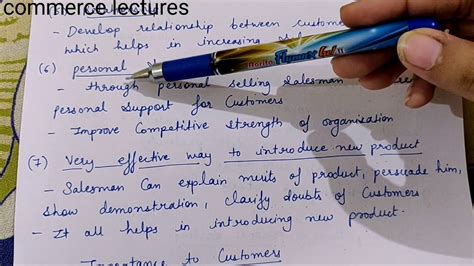 commerce lectures
- Develop relationship between custome
which helps in increasing
(6) personal
- through personal selling salesman
personal support for Customers
- Improve Competitive strength of organisation
(7) Very effective way to introduce new product
- Salesman Can explain merits of product, persuade him,
show demonstration, clarify doubts of Customers
- It all helps in introducing new product.
Importance to Customers